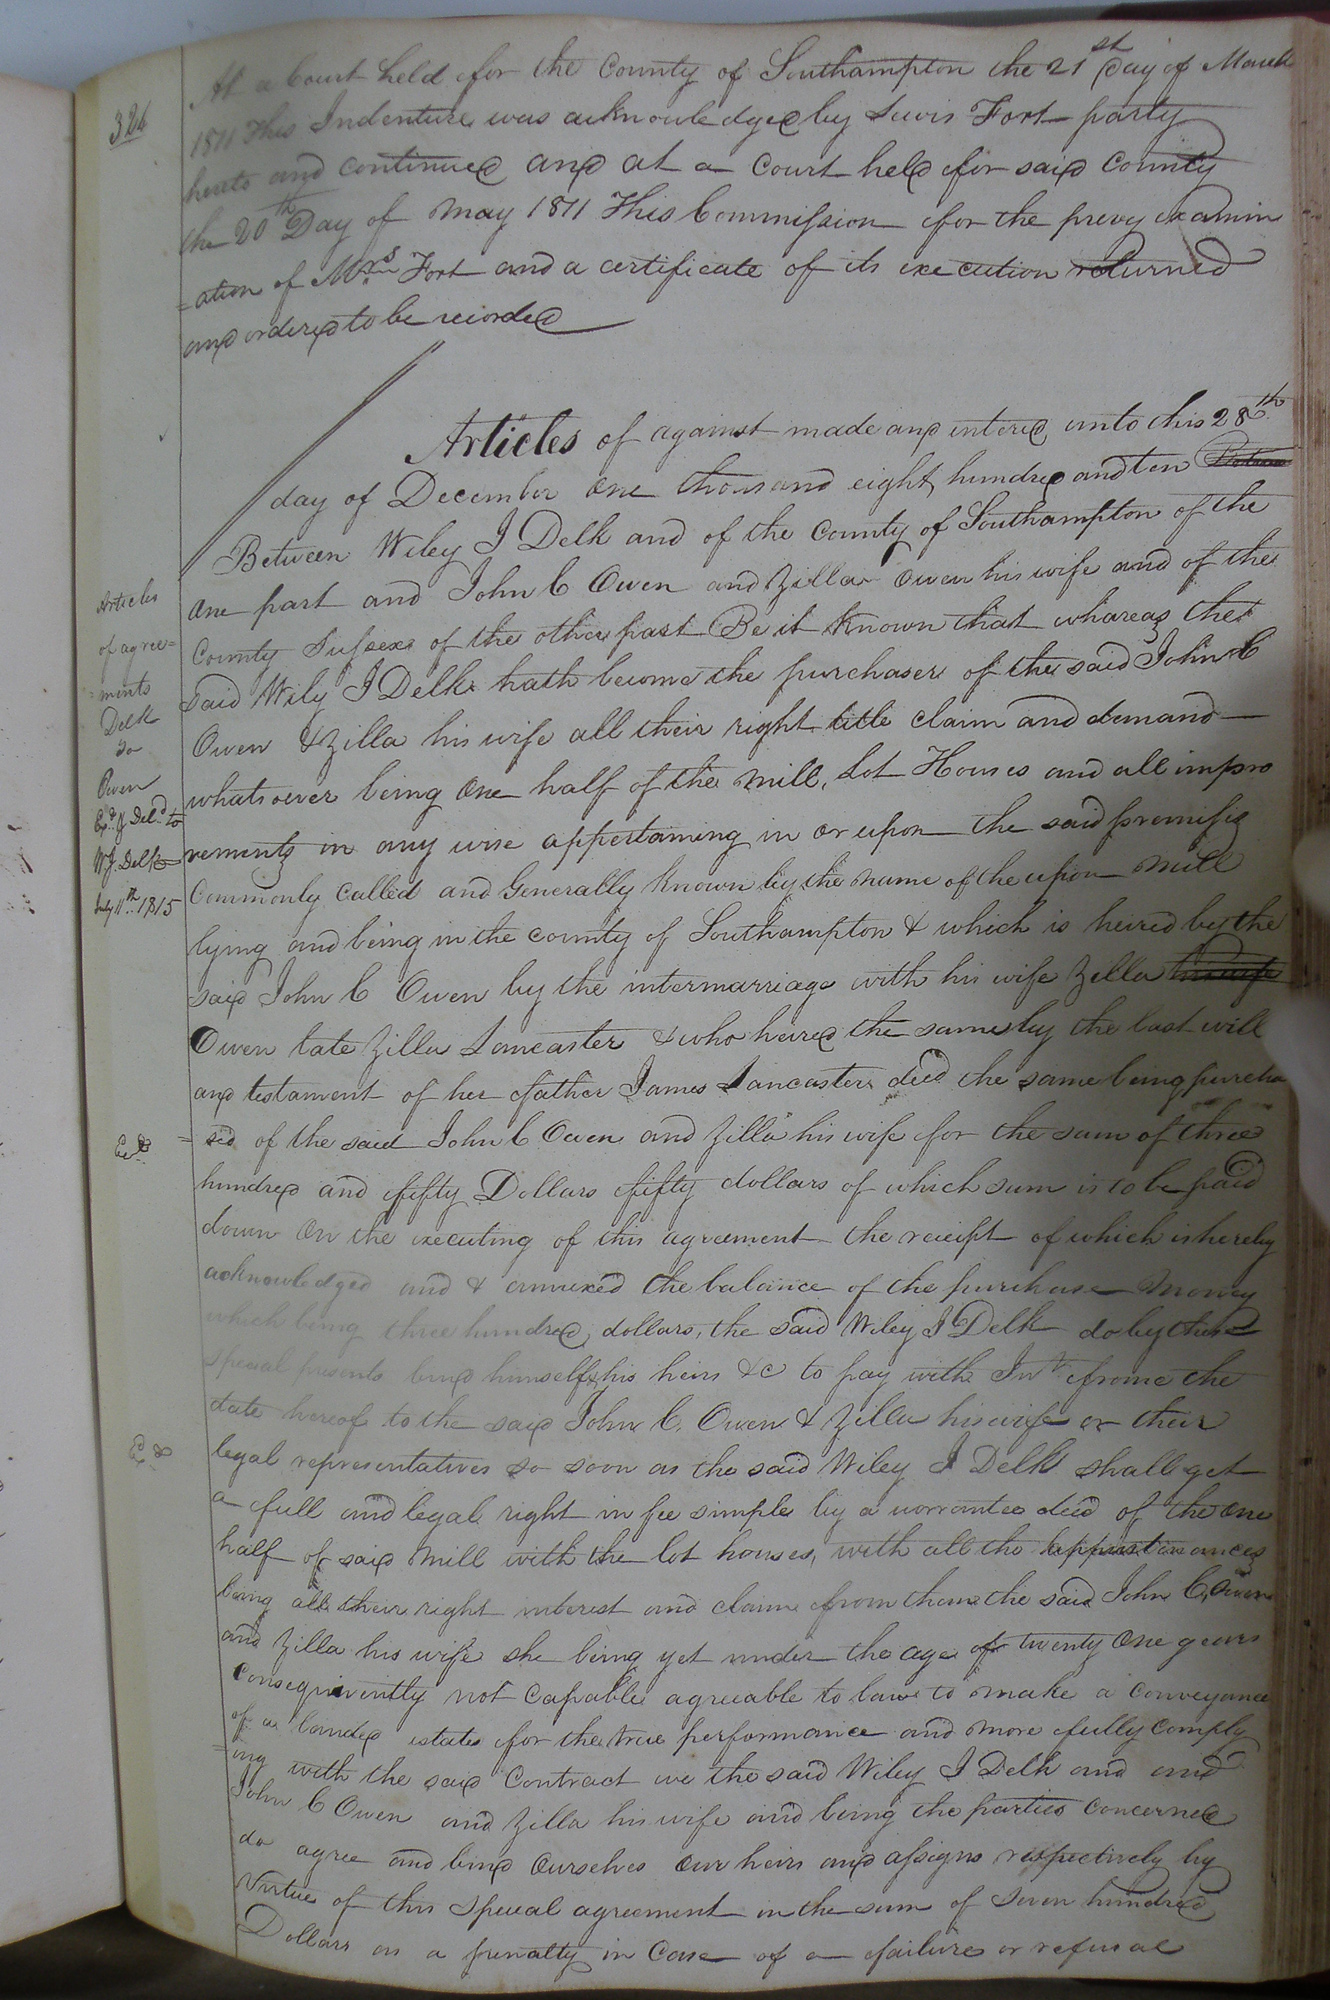 326
At a Court held for the County of Southampton the 21st day of March
1811 This Indenture was acknowledged by Lewis Fort party
hereto and continued and at a Court held for said County
the 20th Day of May 1811 This Commission for the prevy examin
=ation of Mrs Fort and a certificate of its execution returned
and ordered to be recorded
Articles of against made and entered unto this 28th
day of December One thousand eight hundred and ten
Between Wiley J Delk and of the County of Southampton of the
one part and John C Owen and Zilla Owen his wife and of the
County Sussex of the other part Be it Known that whareas the
said Wily J Delk hath become the purchaser of the said John C
Owen & Zilla his wife all their right title claim and demand
whatsoever being One half of the Mill, Lot Houses and all impro
vements in any wise appertaining in or upon the said premises
Commonly Called and Generally Known by the name of the upon Mill
lying and being in the county of Southampton & which is heired by the
said John C Owen by the intermarriage with his wife Zilla his wife
Owen late Zilla Lancaster & who heired the same by the last will
and testament of her father James Lancaster decd the same being purcha
=sed of the said John C Owen and Zilla his wife for the sum of three
hundred and fifty Dollars fifty dollars of which sum is to be paid
down On the executing of this agreement the receipt of which is hereby
acknowledged and & annexed the balance of the purchase Money
which being three hundred dollars, the said Wiley J Delk do by these
special presents bind himself his heirs &c to pay with Int frome the
date hereof to the said John C. Owen & Zilla his wife or their
legal representatives so soon as the said Wiley J Delk shall get
a full and legal right in fee simple by a warrantee deed of the one
half of said Mill with the lot houses, with all the appurtenances
being all their right interest and claim from them the said John C. Owen
and Zilla his wife she being yet under the age of twenty One years
Consequivently not Capable agreeable to law to make a Conveyance
of a landed estate for the true performance and more fully Comply
=ing with the said Contract we the said Wiley J Delk and and
John C Owen and Zilla his wife and being the parties Concerned
do agree and bind Ourselves Our heirs and assigns respectively by
Virtue of this Special agreement in the sum of Seven hundred
Dollars as a penalty in Case of a failure or refusal
Articles
of agree=
=ments
Delk
to
Owen
Exd & Deld to
W J. Delk
July 11th 1815
Exd
Exd